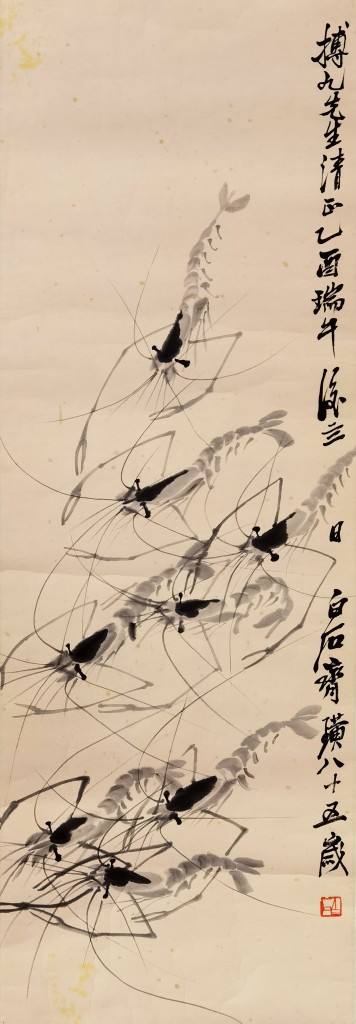 搏九先生清正乙酉瑞午後三日白石齊璜八十五歲